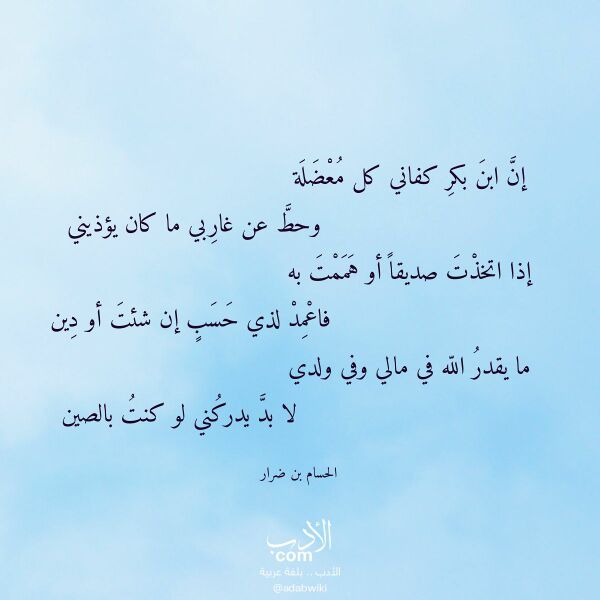 إنَّ ابنَ بكرِ كفاني كل مُعْضَلَة
وحطَّ عن غارِبي ما كان يؤذيني
إذا اتخذْتَ صديقاً أو هَمَمْتَ به
فاعْمِدْ لذي حَسَبٍ إن شئتَ أو دِين
ما يقدرُ اللّه في مالي وفي ولدي
لا بدَّ يدركُني لو كنتُ بالصين
الحسام بن ضرار
الأدب
com
الأدب .. بلغة عربية
@adabwiki